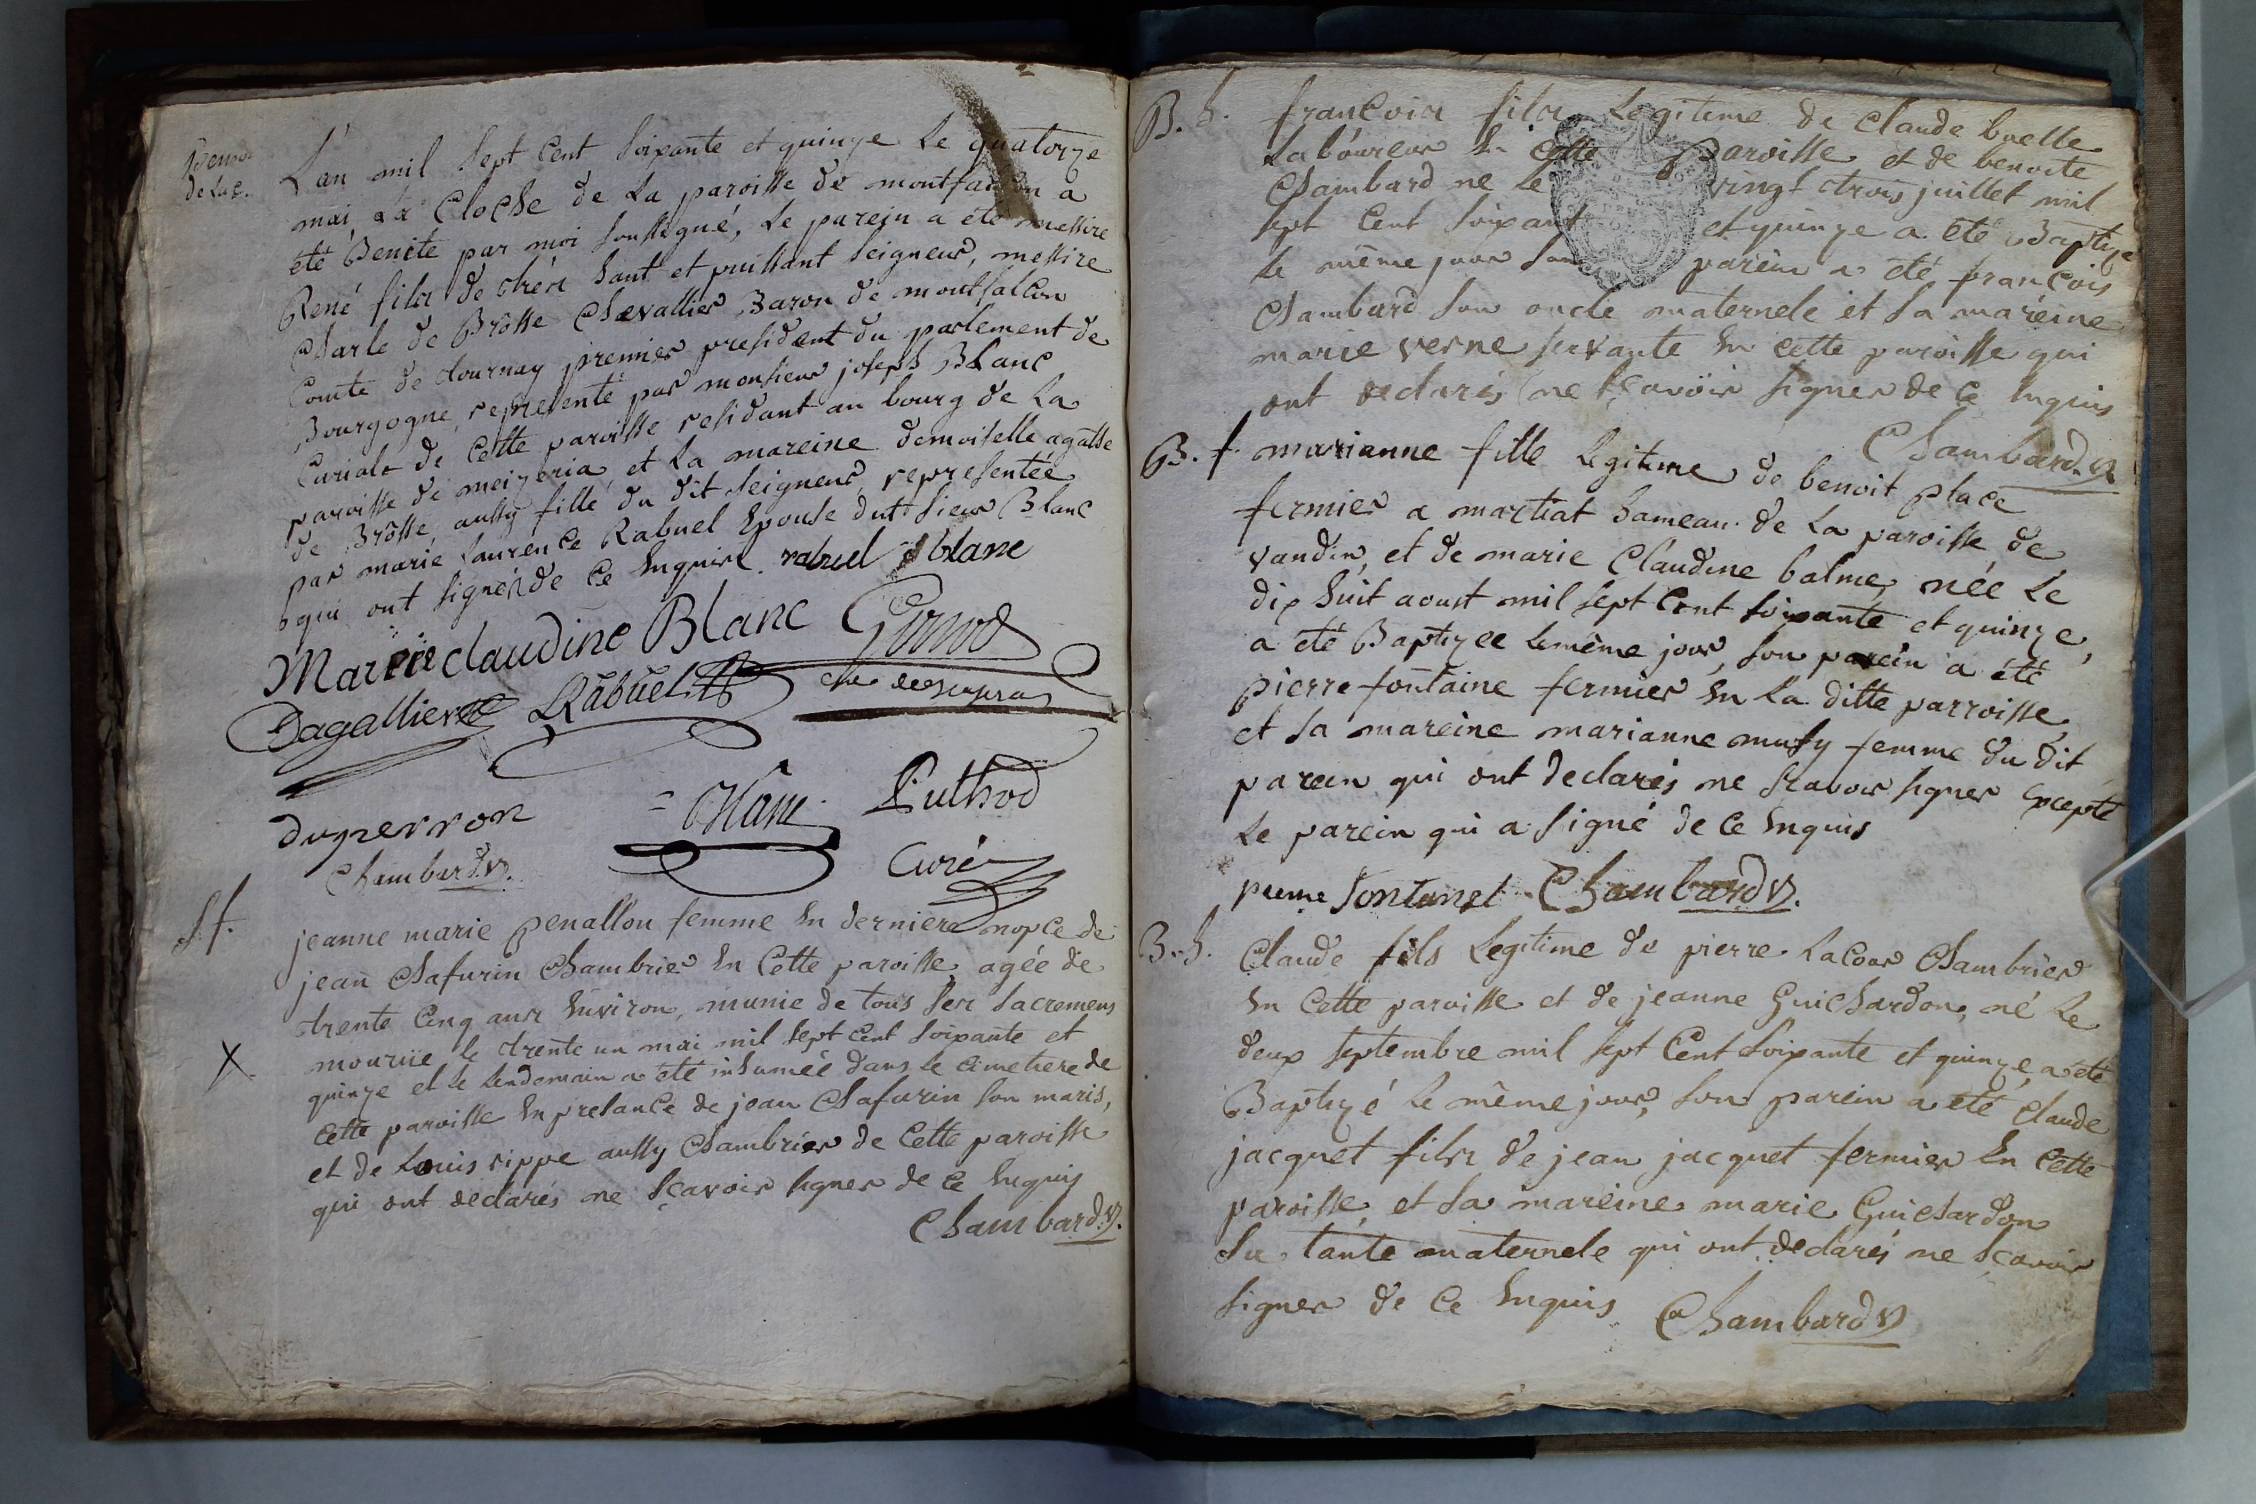 Bened.
de la c.
L'an mil sept cent soixante et quinze le quatorze
mai, la cloche de la paroisse de montfalcon a
été Benite par moi soussigné, le parein a été messire
René fils de très haut et puissant seigneur, messire
charle de Brosse chevallier Baron de montfalcon
Comte de tournay premier president du parlement de
Bourgogne, representé par monsieur joseph Blanc
Curiale de cette paroisse residant au bourg de la
paroisse de meizeria, et la mareine demoiselle agathe
de Brosse, aussy fille du dit seigneur representée
par marie laurence Rabuel Epouse dut sieur Blanc
qui ont signés de ce Enquis. rabuel blanc
Marie claudine Blanc Girod
Dagallier Rabuel
duperron Blanc Puthod
Chambard V. Curé
S. f.
jeanne marie penallou femme En derniere nopce de
jean chafurin chambrier En cette paroisse, agée de
trente cinq ans Environ, munie de tous ses sacremens
X
mourüe le trente un mai mil sept cent soixante et
quinze et le lendemain a été inhumée dans le cimetiere de
cette paroisse En presance de jean chafurin son maris,
et de Louis rippe aussy chambrier de cette paroisse
qui ont declarés ne sçavoir signer de ce Enquis
Chambard V.
B. h.
francois fils Legitime de claude buelle
Laboureur En cette Paroisse et de benoite
chambard ne le vingt trois juillet mil
sept cent soixante et quinze a été Baptize
le même jour son parein a été francois
chambard son oncle maternele et sa mareine
marie verne servante En cette paroisse qui
ont declarés ne sçavoir signer de ce Enquis
Chambard V
B. f.
marianne fille Legitime de benoit place
fermier a martiat hameau de la paroisse de
vandin, et de marie claudine balme, née le
dix huit aoust mil sept cent soixante et quinze,
a été Baptizee le même jour, son parein a été
pierre fontaine fermier En la ditte parroisse,
et sa mareine marianne musy femme du dit
parein qui ont declarés ne scavoir signer Excepté
le parein qui a signé de ce Enquis
pierre fontanel Chambard V.
B. h.
claude fils Legitime de pierre Lacour chambrier
En cette paroisse et de jeanne Guichardon, né le
deux septembre mil sept cent soixante et quinze, a été
Baptizé le même jour, son parein a été claude
jacquet fils de jean jacquet fermier En cette
paroisse, et sa mareine marie Guichardon
sa tante maternele qui ont declarés ne sçavoir
signer de ce Enquis Chambard V